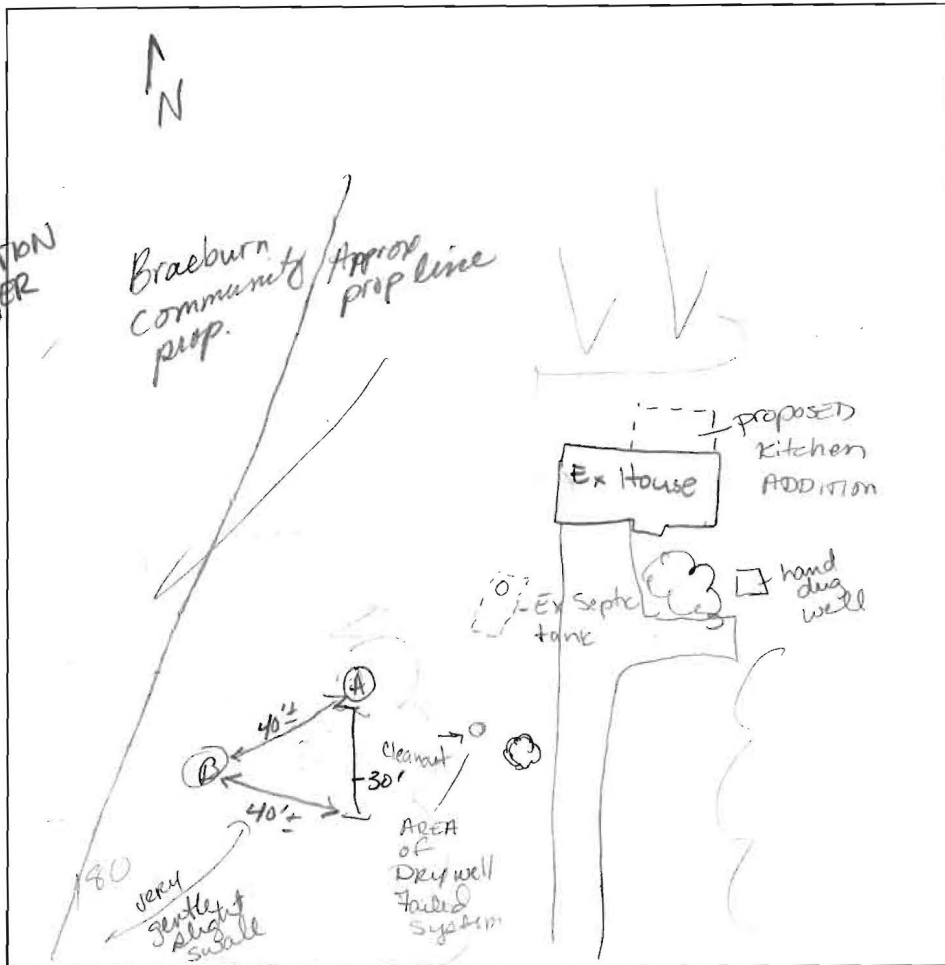 N
Braeburn
Community
prop.
Approx
prop line
proposed
Kitchen
ADDITION
Ex House
hand
dug
well
Ex Septic
tank
A
40'±
B
30'
40'±
Cleanout
AREA
of
Drywell
Failed
System
180
very
gentle
slight
swale